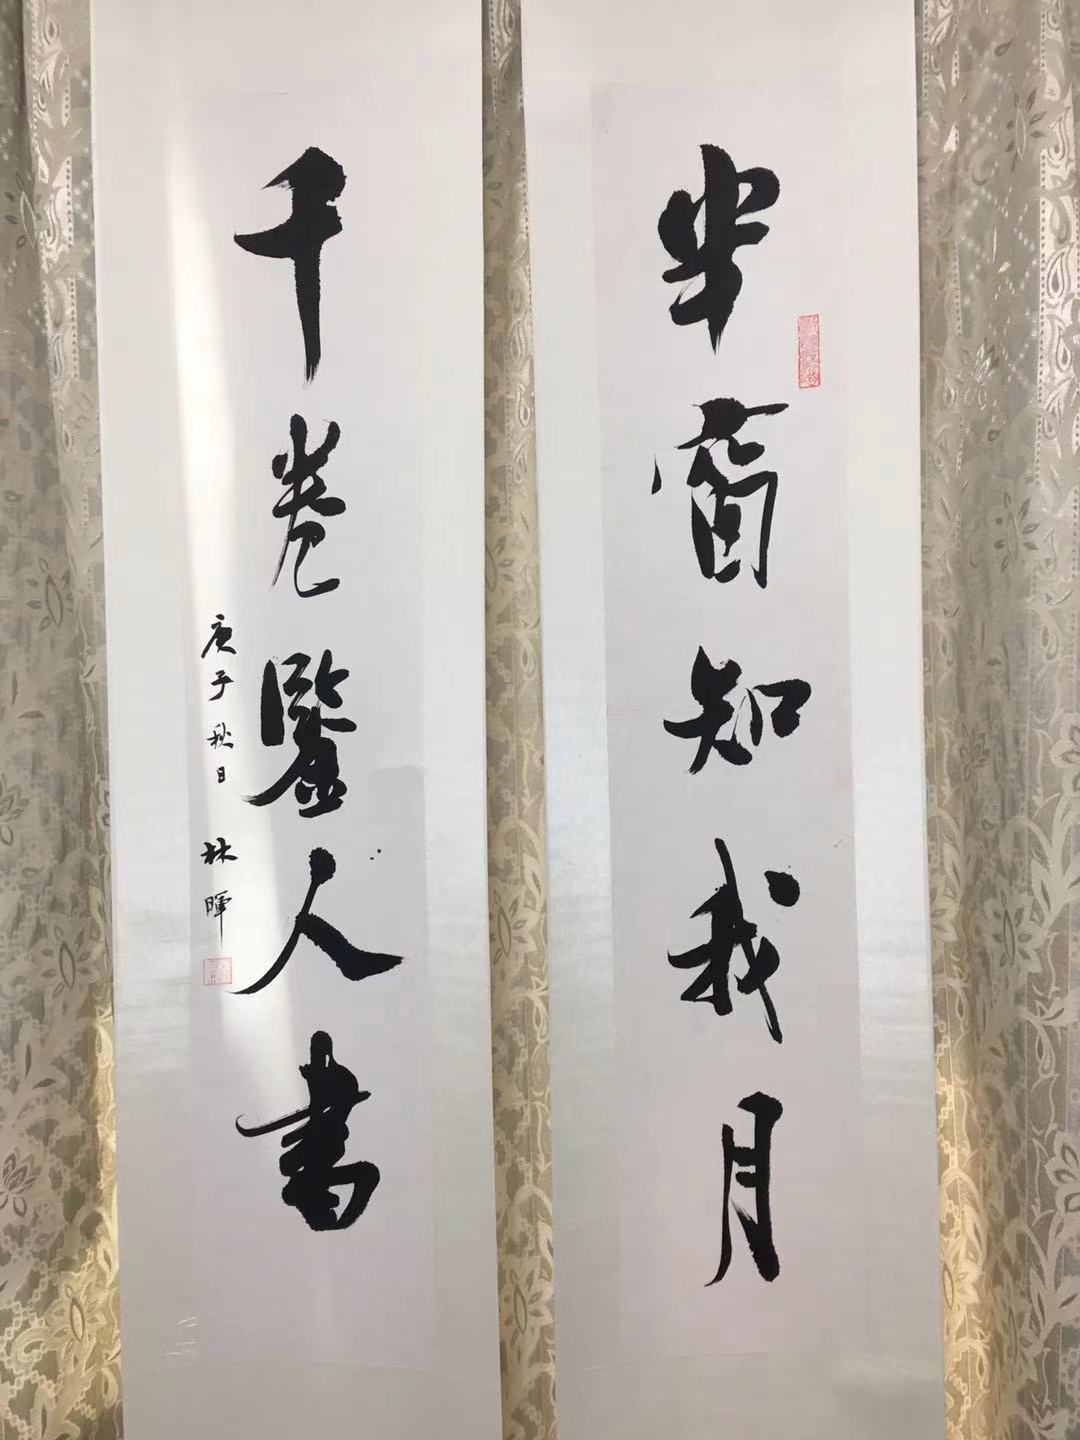 半窗知我月
千卷鑒人書
庚子秋日 林暉